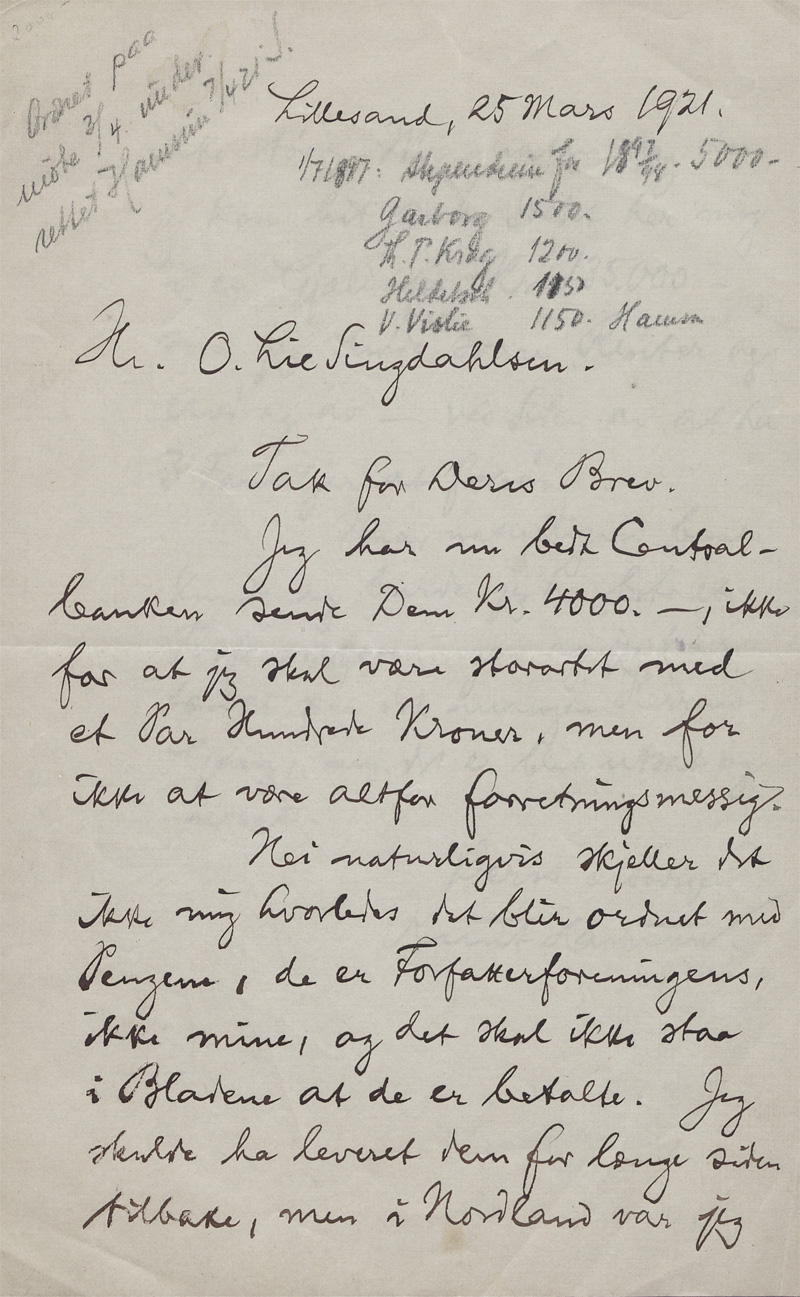 Ordnet paa
møte 3/4. under
rettet Hamsun 7/4 21 J.
Lillesand, 25 Mars 1921.
1/7 1897: Stipendium for 1897/98 - 5000-
Garborg 1500.
Th. P. Krag 1200.
1150
V. Vislie 1150. Hamsun
Hr. O. Lie Singdahlsen.
Tak for Deres Brev.
Jeg har nu bedt Central-
banken sende Dem Kr. 4000. —, ikke
for at jeg skal være storartet med
et Par Hundrede Kroner, men for
ikke at være altfor forretningsmessig.
Nei naturligvis skjeller det
ikke mig hvorledes det blir ordnet med
Pengene, de er Forfatterforeningens,
ikke mine, og det skal ikke staa
i Bladene at de er betalte. Jeg
skulde ha leveret dem for længe siden
tilbake, men i Nordland var jeg